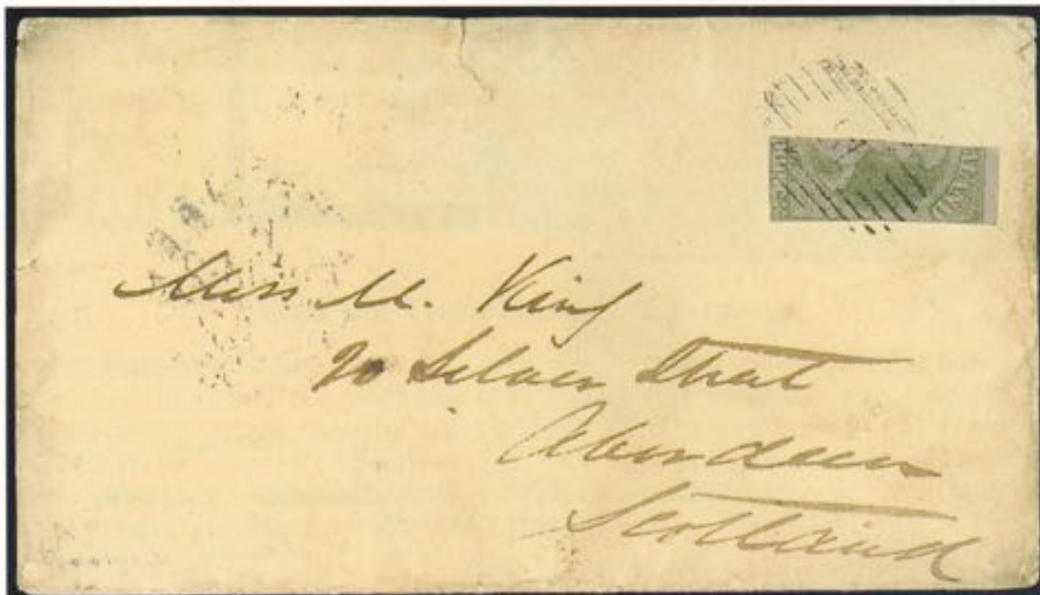 Miss M. King
20 Silver Street
Aberdeen
Scotland